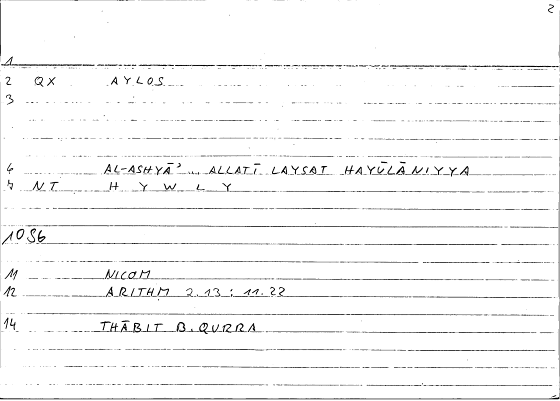 2
1
2 QX AYLOS
3
4 AL-ASHYĀʾ ... ALLATĪ LAYSAT HAYŪLĀNIYYA
5 NT H Y W L Y
10 S6
11 NICOM
12 ARITHM 2.13 : 11.22
14 THĀBIT B. QURRA